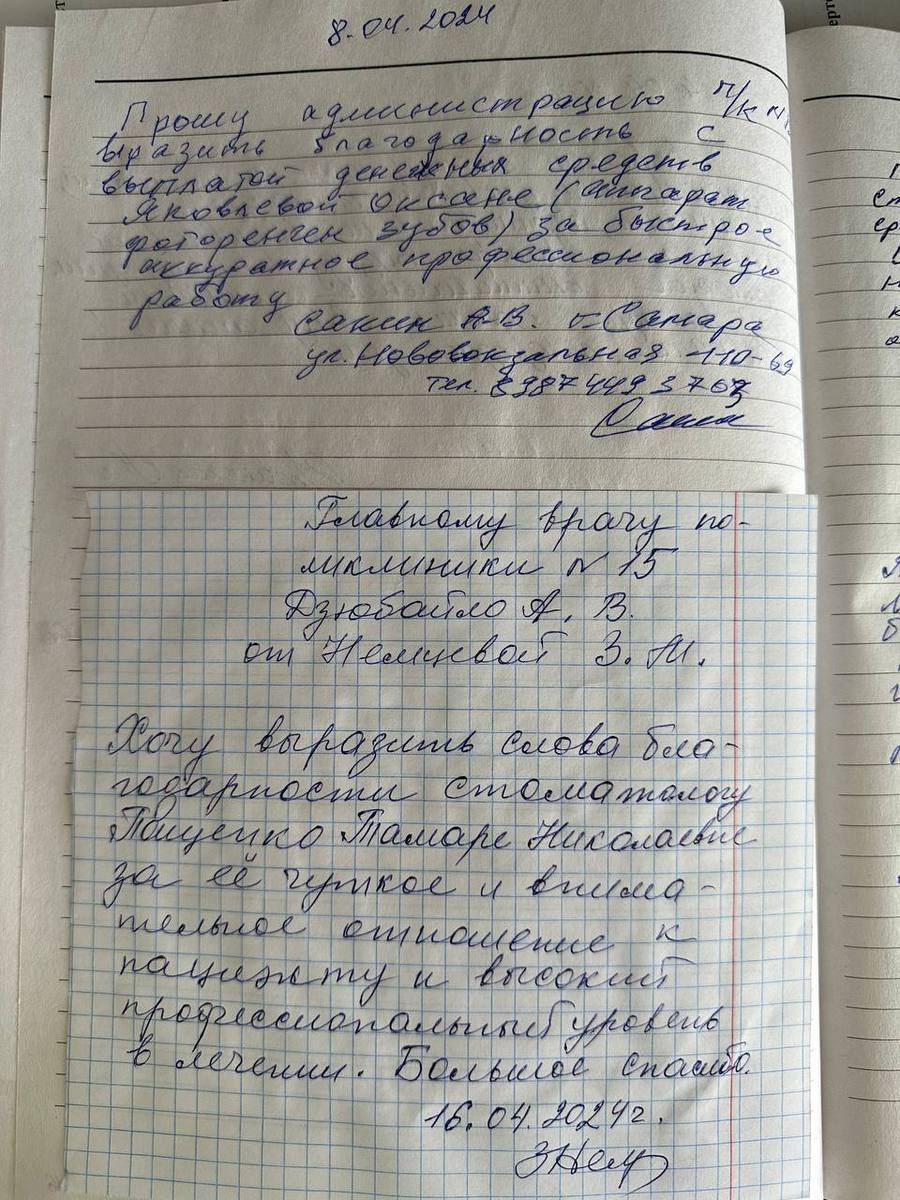 8.04.2024
Прошу администрацию п/к
выразить благодарность с
выплатой денежных средств
Яковлевой Оксане (аппарат
фоторенген зубов) за быстрое
аккуратное профессиональную
работу
Сакин А.В. г. Самара
ул. Нововокзальная 110-69
тел.
Главному врачу по-
ликлиники N 15
Дзюбайло А. В.
от Немцевой З. М.
Хочу выразить слова бла-
годарности стоматологу
Тамаре Николаевне
за её чуткое и внима-
тельное отношение к
пациенту и высокий
профессиональный уровень
в лечении. Большое спасибо.
16.04.2024г.
ЗНем